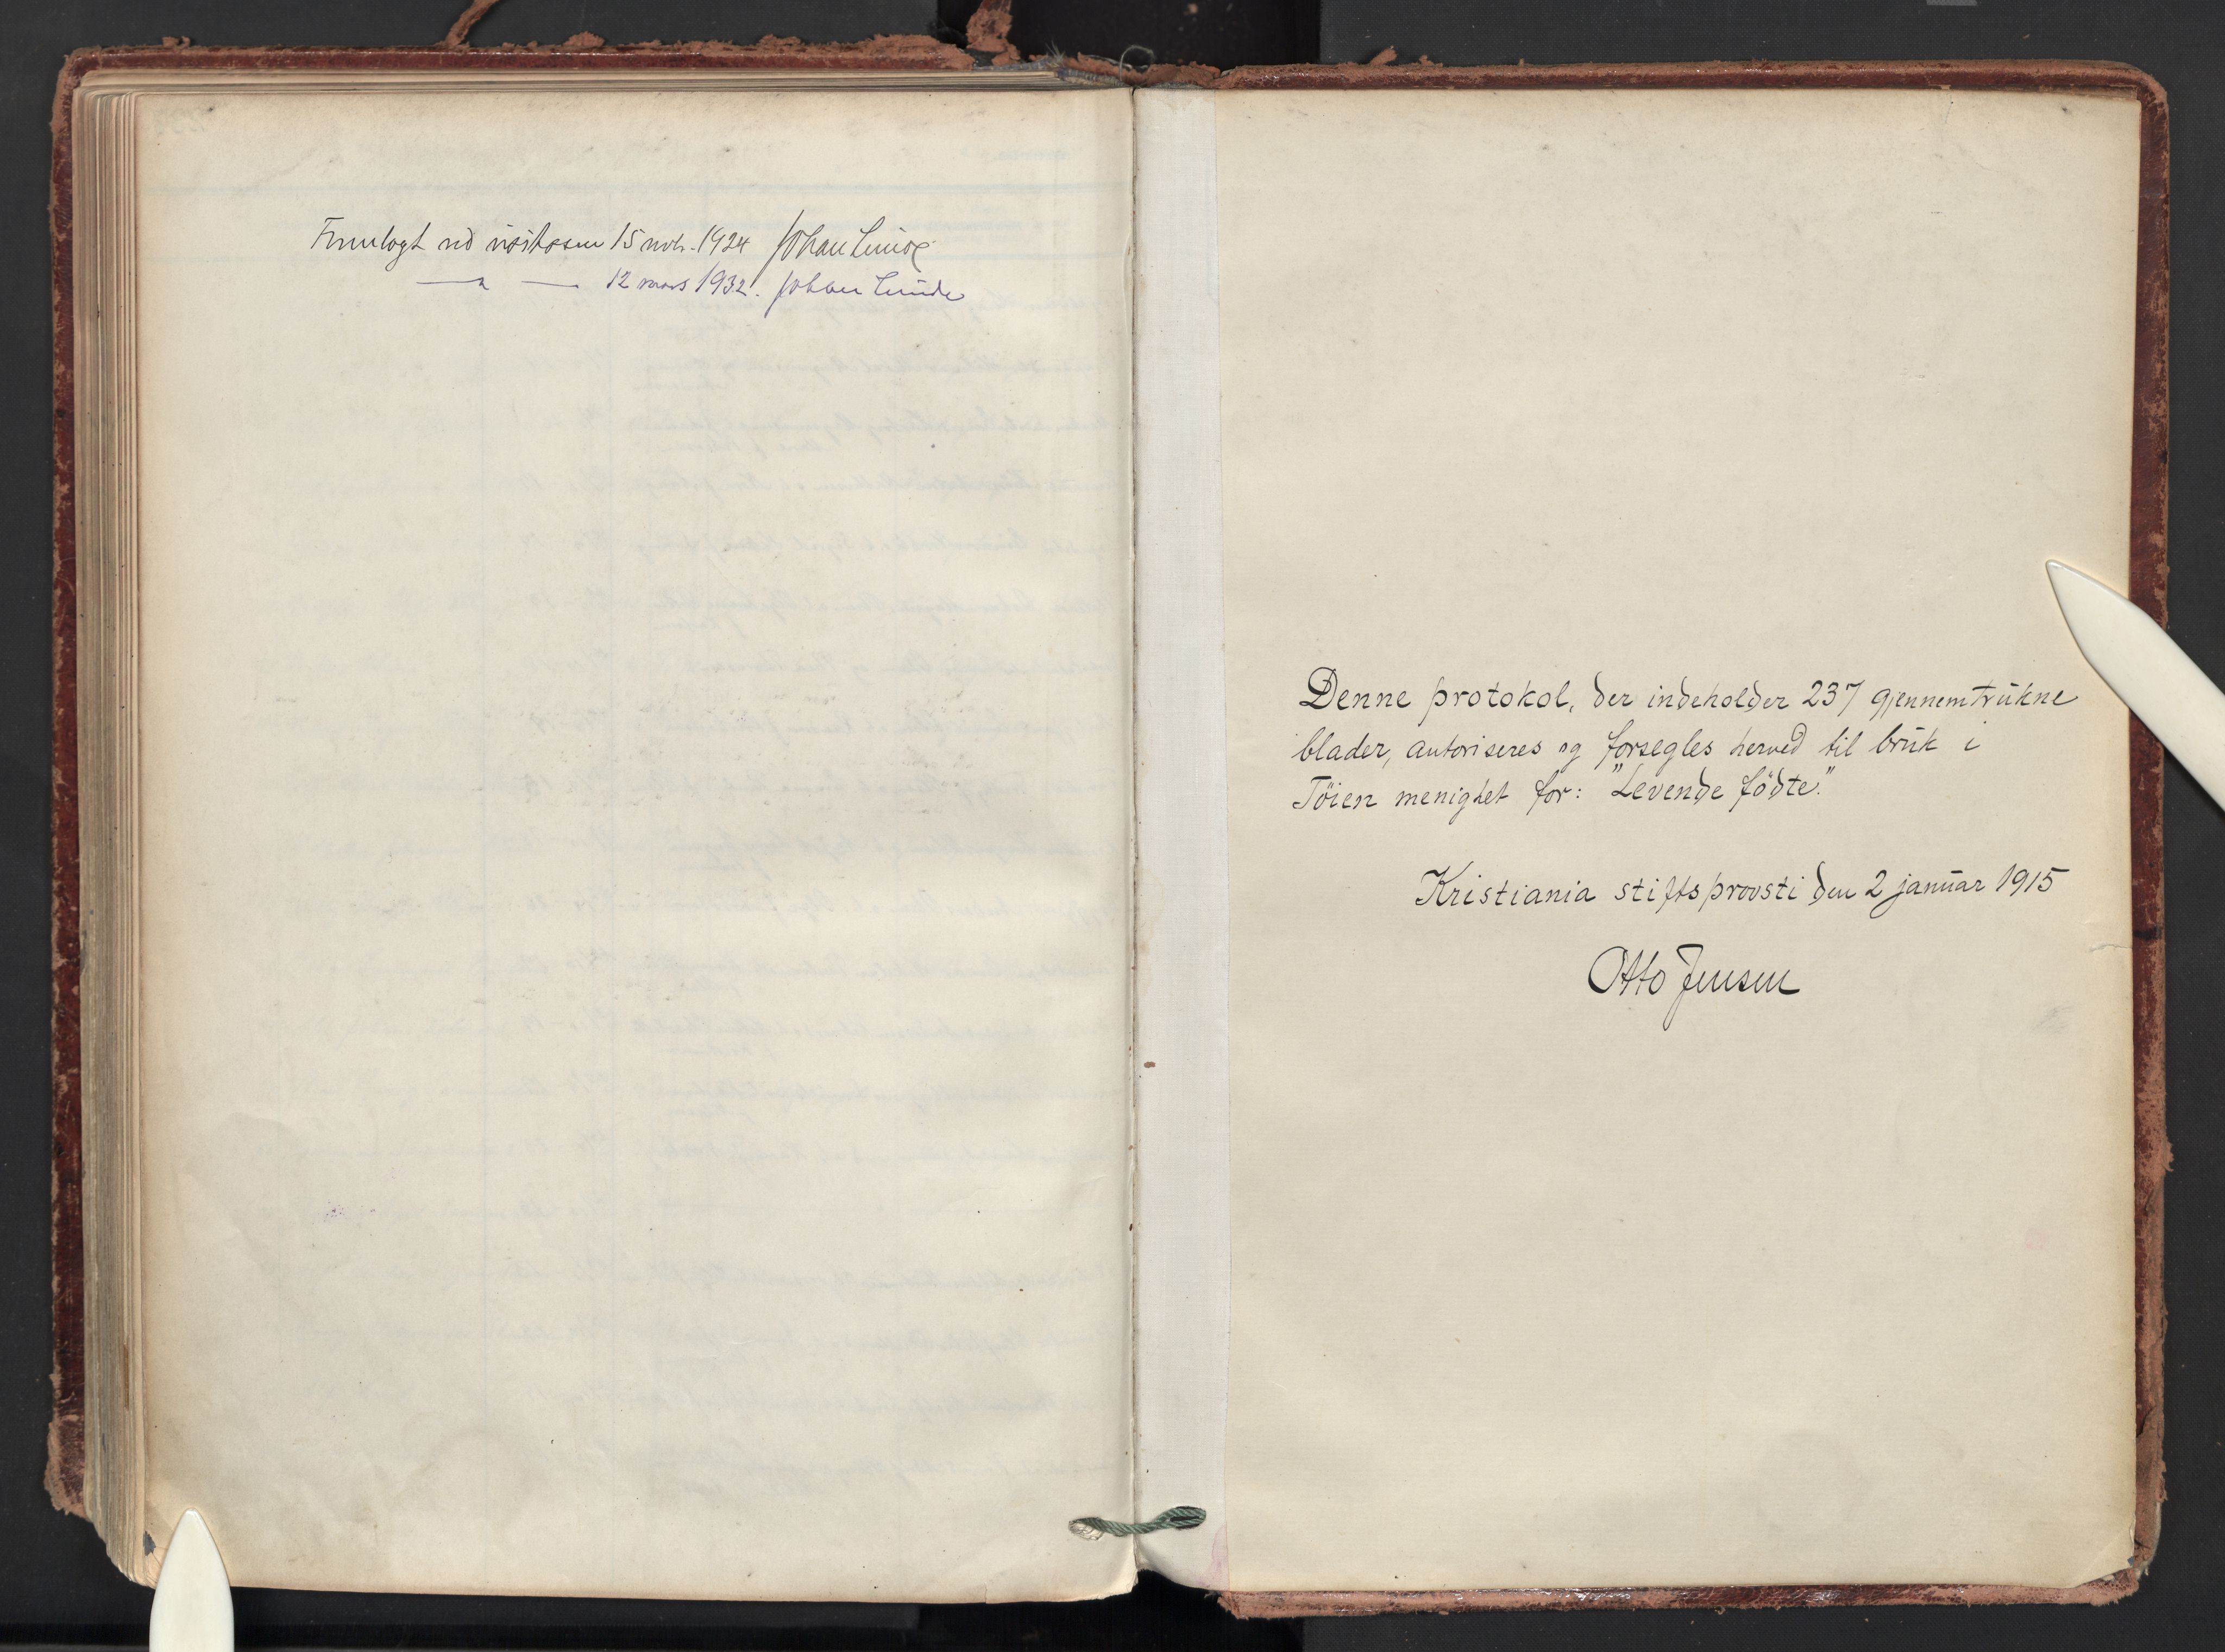 Fremlagt ved visitasen 15 nov. 1924 Johan Lunde
— " — 12 mars 1932. Johan Lunde
Denne protokol, der indeholder 237 gjennemtrukne
blader, autoriseres og forsegles herved til bruk i
Töien menighet for: "Levende födte".
Kristiania stiftsprovsti den 2 januar 1915
Otto Jensen